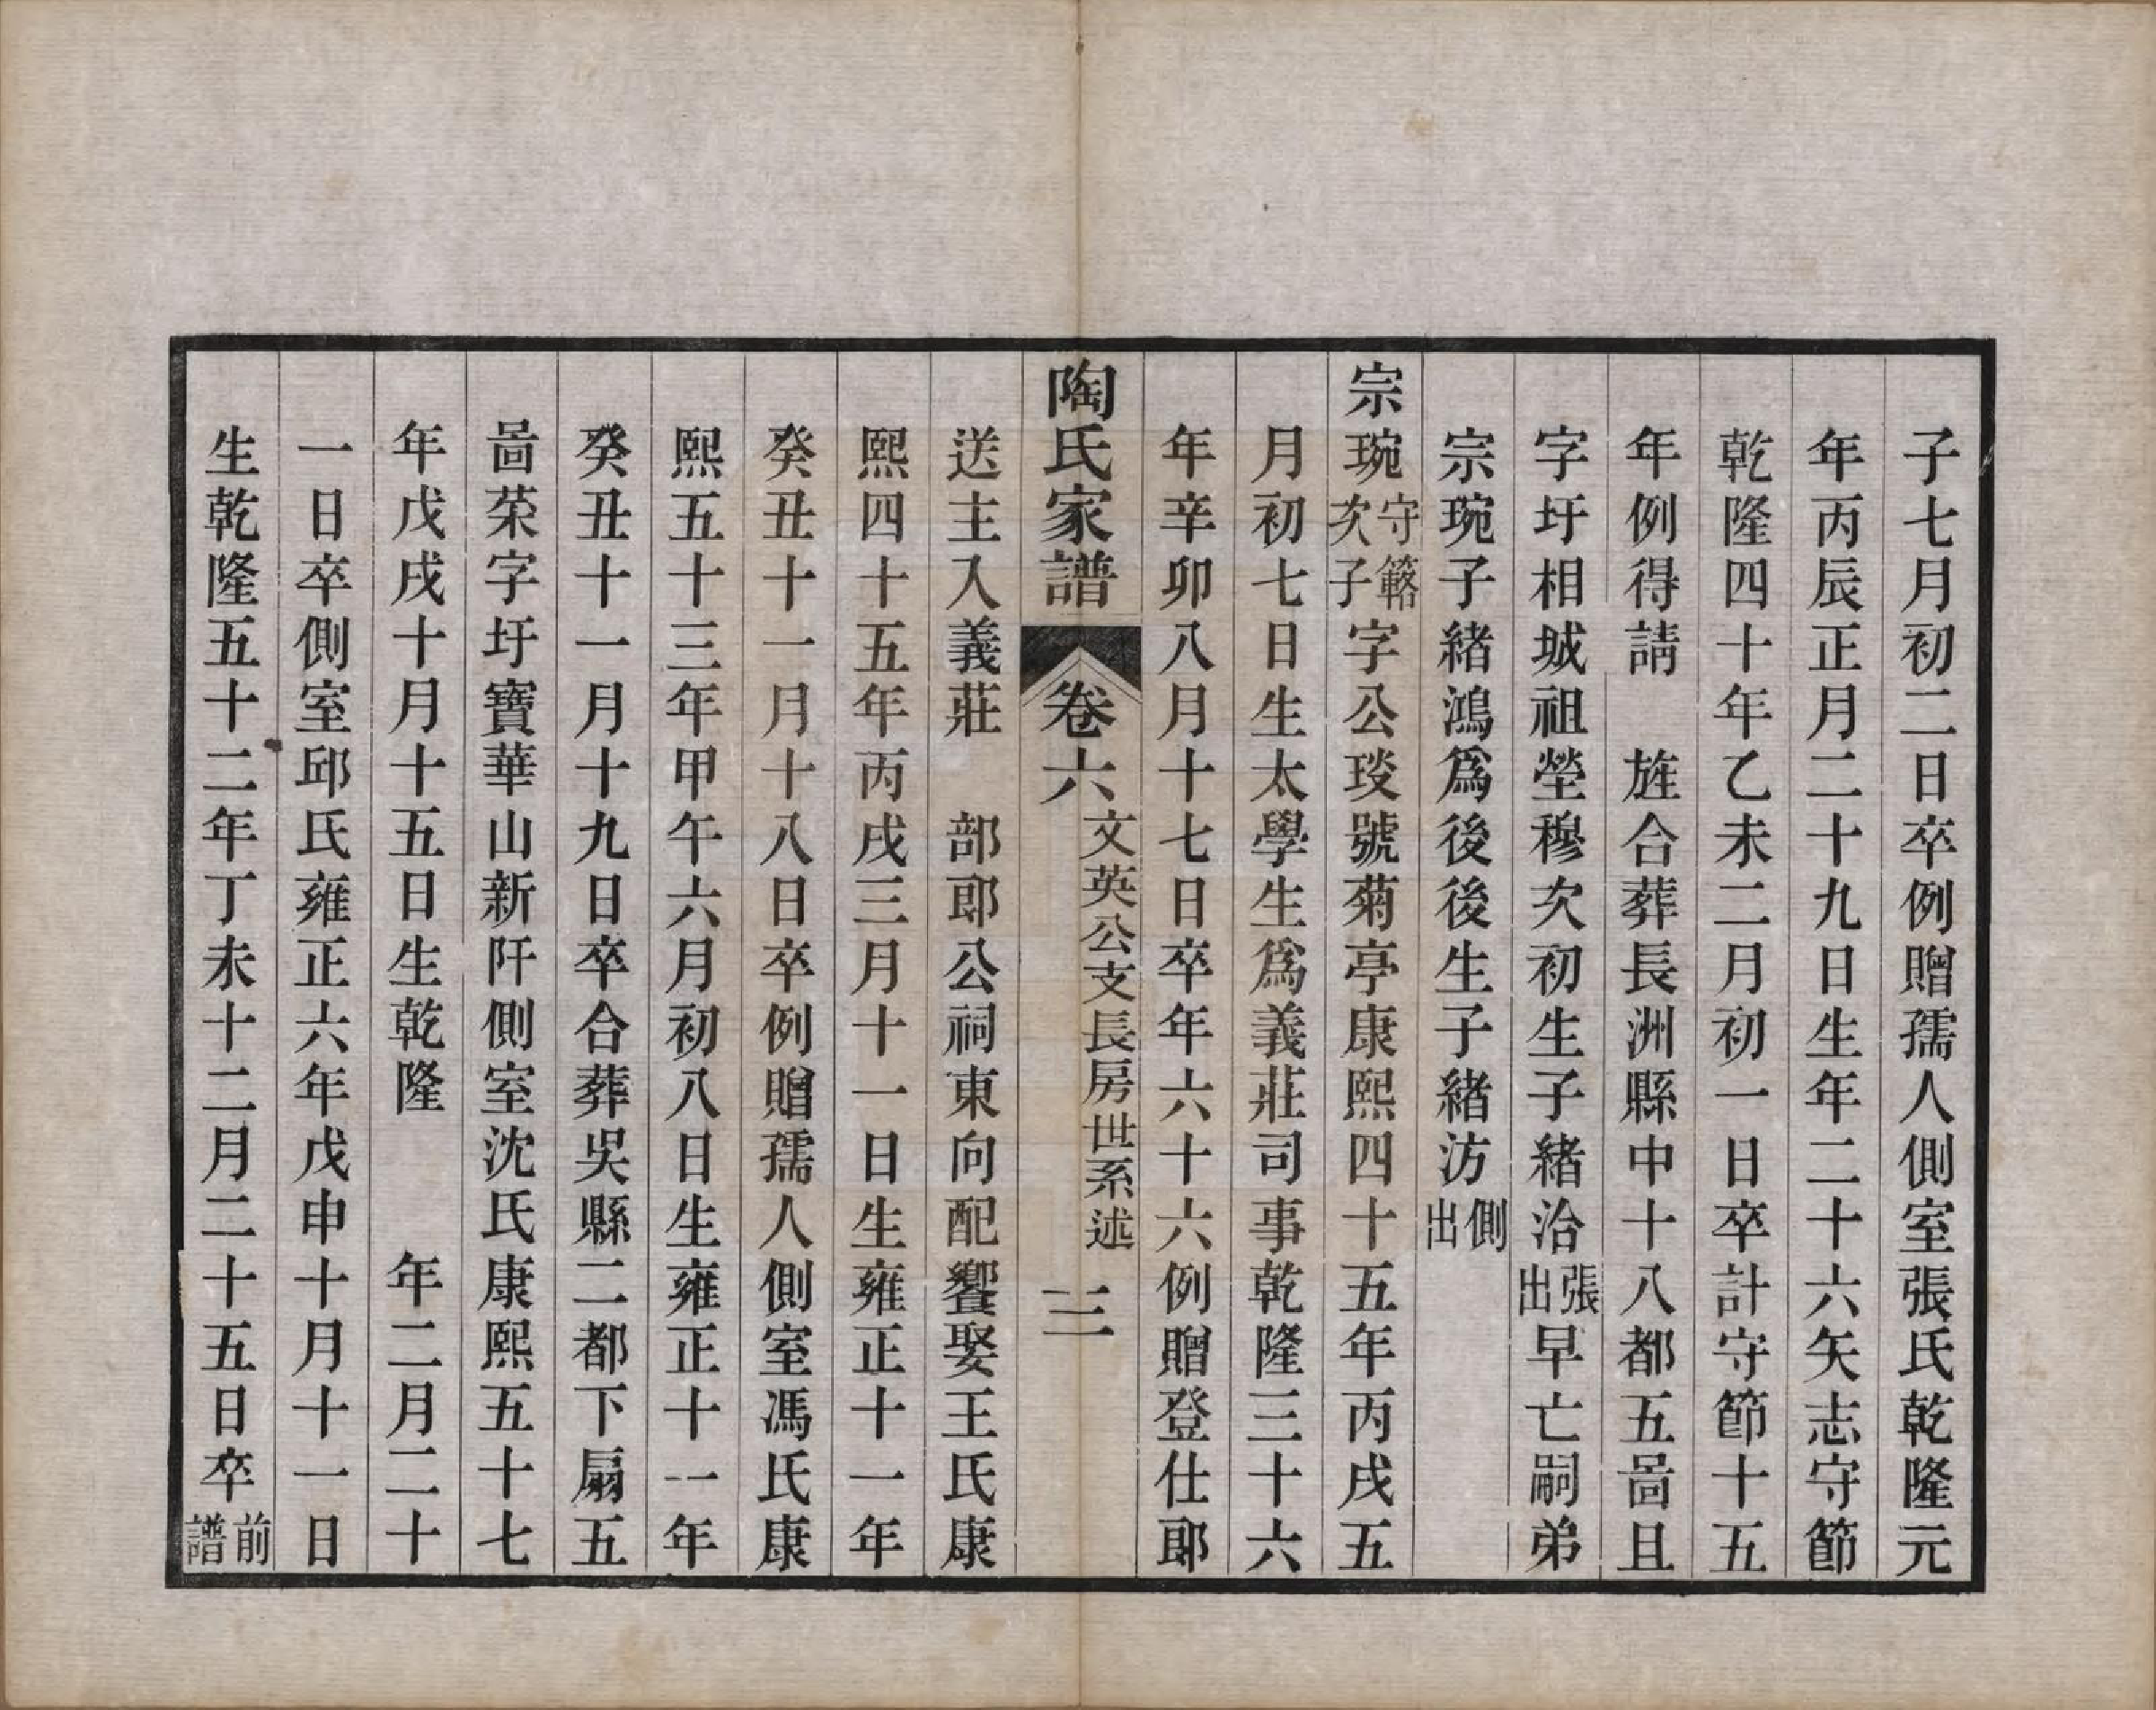 子七月初二日卒例贈孺人側室張氏乾隆元
年丙辰正月二十九日生年二十六矢志守節
乾隆四十年乙未二月初一日卒計守節十五
年例得請　旌合葬長洲縣中十八都五啚且
字圩相城祖塋穆次初生子緒治張出早亡嗣弟
宗琬子緒鴻爲後後生子緒汸側出
宗琬守簵次子字公琰號菊亭康熙四十五年丙戌五
月初七日生太學生爲義莊司事乾隆三十六
年辛卯八月十七日卒年六十六例贈登仕郎
陶氏家譜　卷六　文英公支長房世系述　三
送主入義莊　部郎公祠東向配饗娶王氏康
熙四十五年丙戌三月十一日生雍正十一年
癸丑十一月十八日卒例贈孺人側室馮氏康
熙五十三年甲午六月初八日生雍正十一年
癸丑十一月十九日卒合葬吳縣二都下扇五
啚荣字圩寶華山新阡側室沈氏康熙五十七
年戊戌十月十五日生乾隆　年二月二十
一日卒側室邱氏雍正六年戊申十月十一日
生乾隆五十二年丁未十二月二十五日卒前譜